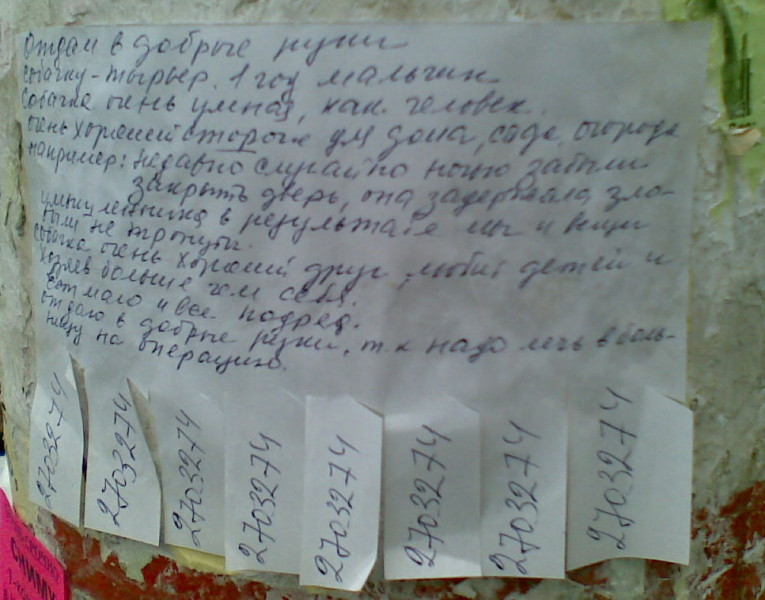 Отдам в добрые руки
собачку-тырьер. 1 год мальчик
Собачка очень умная, как человек.
очень хороший сторож для дома, сада, огорода
например: недавно случайно ночью забыли
закрыть дверь, она задержала зло-
умышленника в результате мы и вещи
были не тронуты.
Собачка очень хороший друг, любит детей и
хозяев больше чем себя.
Ест мало и все подряд.
отдаю в добрые руки, т.к надо лечь в боль-
ницу на операцию.
2703274
2703274
2703274
2703274
2703274
2703274
2703274
2703274
СНИМУ